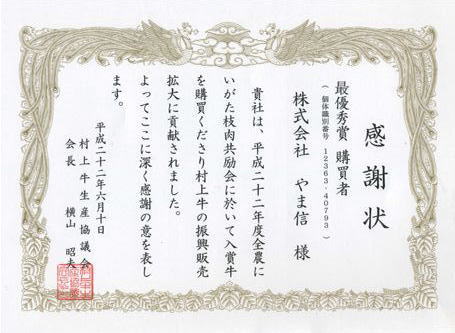 感謝状
最優秀賞 購買者
(個体識別番号 12363-40793)
株式会社 やま信 様
貴社は、平成二十二年度全農に
いがた枝肉共励会に於いて入賞牛
を購買くださり村上牛の振興販売
拡大に貢献されました。
よってここに深く感謝の意を表し
ます。
平成二十二年六月十日
村上牛生産協議会
会長 横山 昭夫